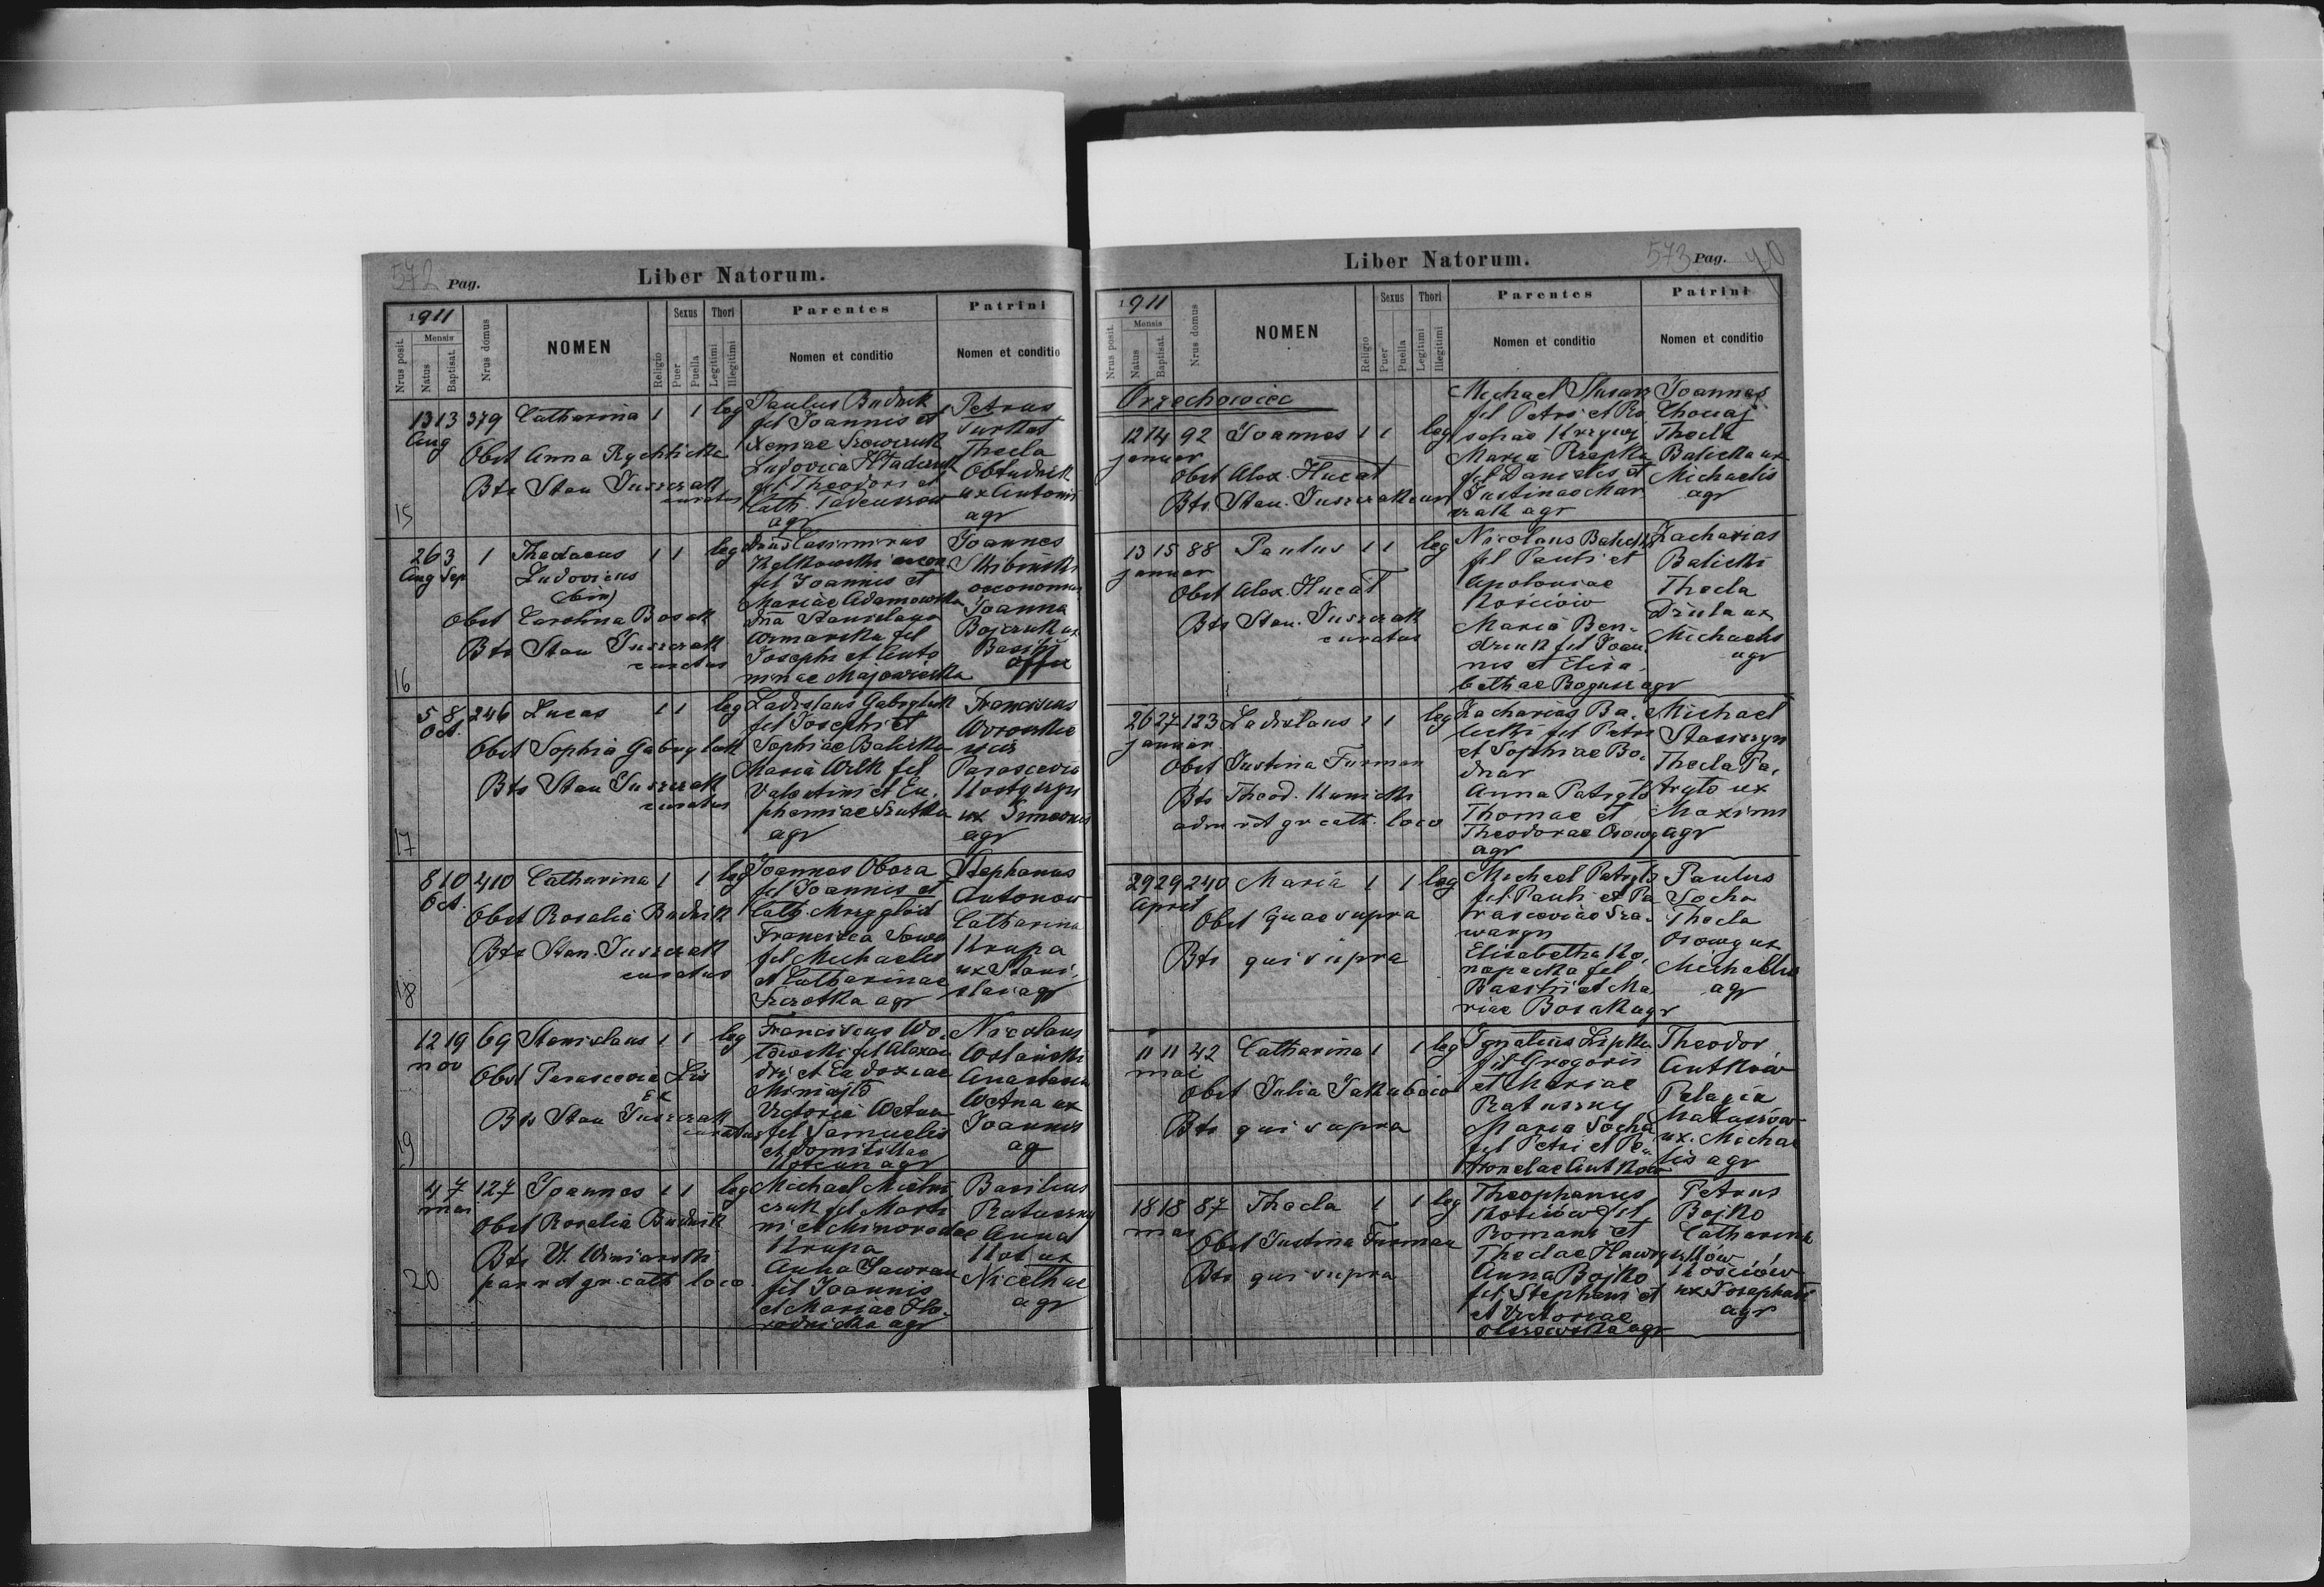 572 Pag. Liber Natorum.
1911
Nrus posit.
Mensis
Natus
Baptisat.
Nrus domus
NOMEN
Religio
Sexus
Puer
Puella
Thori
Legitimi
Illegitimi
Parentes
Nomen et conditio
Patrini
Nomen et conditio
15
13 13 379 Catharina 1 1 leg
Aug
Obst Anna Rychlicka
Bts Stan Juszczak
curatus
Paulus Budnik
fil Joannis et
Xeniae
Ludovica
fil Theodori et
Cath.
agr
Petrus
Thecla
ux Antonii
agr
16
26 3 1 Thadaeus 1 1 leg
Aug Sep Ludovicus
(bin)
Obst Carolina Bosak
Bts Stan Juszczak
curatus
Dnus Casimirus
fil Joannis et
Mariae Adamowska
Dna Stanislava
fil
Josephi et Anto
ninae Majewska
Joannes
Skibiński
oeconomus
Joanna
Bojczuk ux
Basilii
17
5 8 246 Lucas 1 1 leg
Oct.
Obst Sophia Gabryluk
Bts Stan Juszczak
curatus
Ladislaus Gabryluk
fil Josephi et
Sophiae Balicka
Maria Wilk fil
Valentini et Eu
phemiae
agr
Franciscus
Parascevia
Kostyszyn
ux Simeonis
agr
18
8 10 410 Catharina 1 1 leg
Oct.
Obst Rosalia Budnik
Bts Stan. Juszczak
curatus
Joannes Obora
fil Joannis et
Cath. Mrygłod
Francisca Sowa
fil Michaelis
et Catharinae
Szczotka agr
Stephanus
Antonow
Catharina
Krupa
ux Stani
slai agr
19
12 19 69 Stanislaus 1 1 leg
nov
Obst Parascevia Lis
Bts Stan Juszczak
curatus
Franciscus Wo
fil Alexan
dri et Eudoxiae
Victoria
fil Samuelis
et Domitillae
agr
Nicolaus
Wolański
Anastasia
ux
Joannis
ag
20
4 7 127 Joannes 1 1 leg
mai
Obst Rosalia Budnik
Bts Vl. Winiarski
par rit gr. cath loco
Michael Mielni
czuk fil Marti
ni et Minorodae
Krupa
Anna Jawran
fil Joannis
et Mariae Ho
rodnicka agr
Basilius
Ratuszny
Anna
Kot ux
Nicethae
agr
Liber Natorum. 573 Pag. 40
1911
Nrus posit.
Mensis
Natus
Baptisat.
Nrus domus
NOMEN
Religio
Sexus
Puer
Puella
Thori
Legitimi
Illegitimi
Parentes
Nomen et conditio
Patrini
Nomen et conditio
Orzechowiec
12 14 92 Joannes 1 1 leg
januar
Obst Alex. Hucał
Bts. Stan. Juszczak cur
Michael Slusarz
fil Petri et Ro
saliae
Maria Rzepka
fil Danielis et
Justinae Mar
czak agr
Joannes
Thecla
Balicka ux
Michaelis
agr
13 15 88 Paulus 1 1 leg
januar
Obst Alex. Hucał
Bts Stan. Juszczak
curatus
Nicolaus Balicki
fil Pauli et
Apoloniae
Kościów
Maria Ben
dziuk fil Joan
nis et Elisa
bethae Bogusz agr
Zacharias
Balicki
Thecla
Dziula ux
Michaelis
agr
26 27 123 Ladislaus 1 1 leg
januar
Obst Justina Furman
Bts Theod. Kunicki
adm rit gr cath. loco
Zacharias Ba
licki fil Petri
et Sophiae Bo
dnar
Anna Patryło
Thomae et
Theodorae Osowy
agr
Michael
Stasiszyn
Thecla Pa
tryło ux
Maximi
agr
29 29 240 Maria 1 1 leg
April
Obst quae supra
Bts qui supra
Michael Patryło
fil Pauli et Pa
rasceviae Sza
waryn
Elisabetha Ko
nopacka fil
Basilii et Ma
riae Bosak agr
Paulus
Socha
Thecla
Osowy ux
Michaelis
agr
11 11 42 Catharina 1 1 leg
mai
Obst Julia Jakubow
Bts qui supra
Ignatius Lipka
fil Gregorii
et Mariae
Ratuszny
Maria Socha
fil Petri et Pe
tronelae Antków
Theodor
Antków
Pelagia
Matuszów
ux. Michae
lis agr
18 18 87 Thecla 1 1 leg
mai
Obst Justina Furman
Bts qui supra
Theophanus
Kościów fil
Romani et
Theclae
Anna Bojko
fil Stephani et
et Victoriae
Olszewska agr
Petrus
Bojko
Catharina
Kościów
ux Josaphati
agr